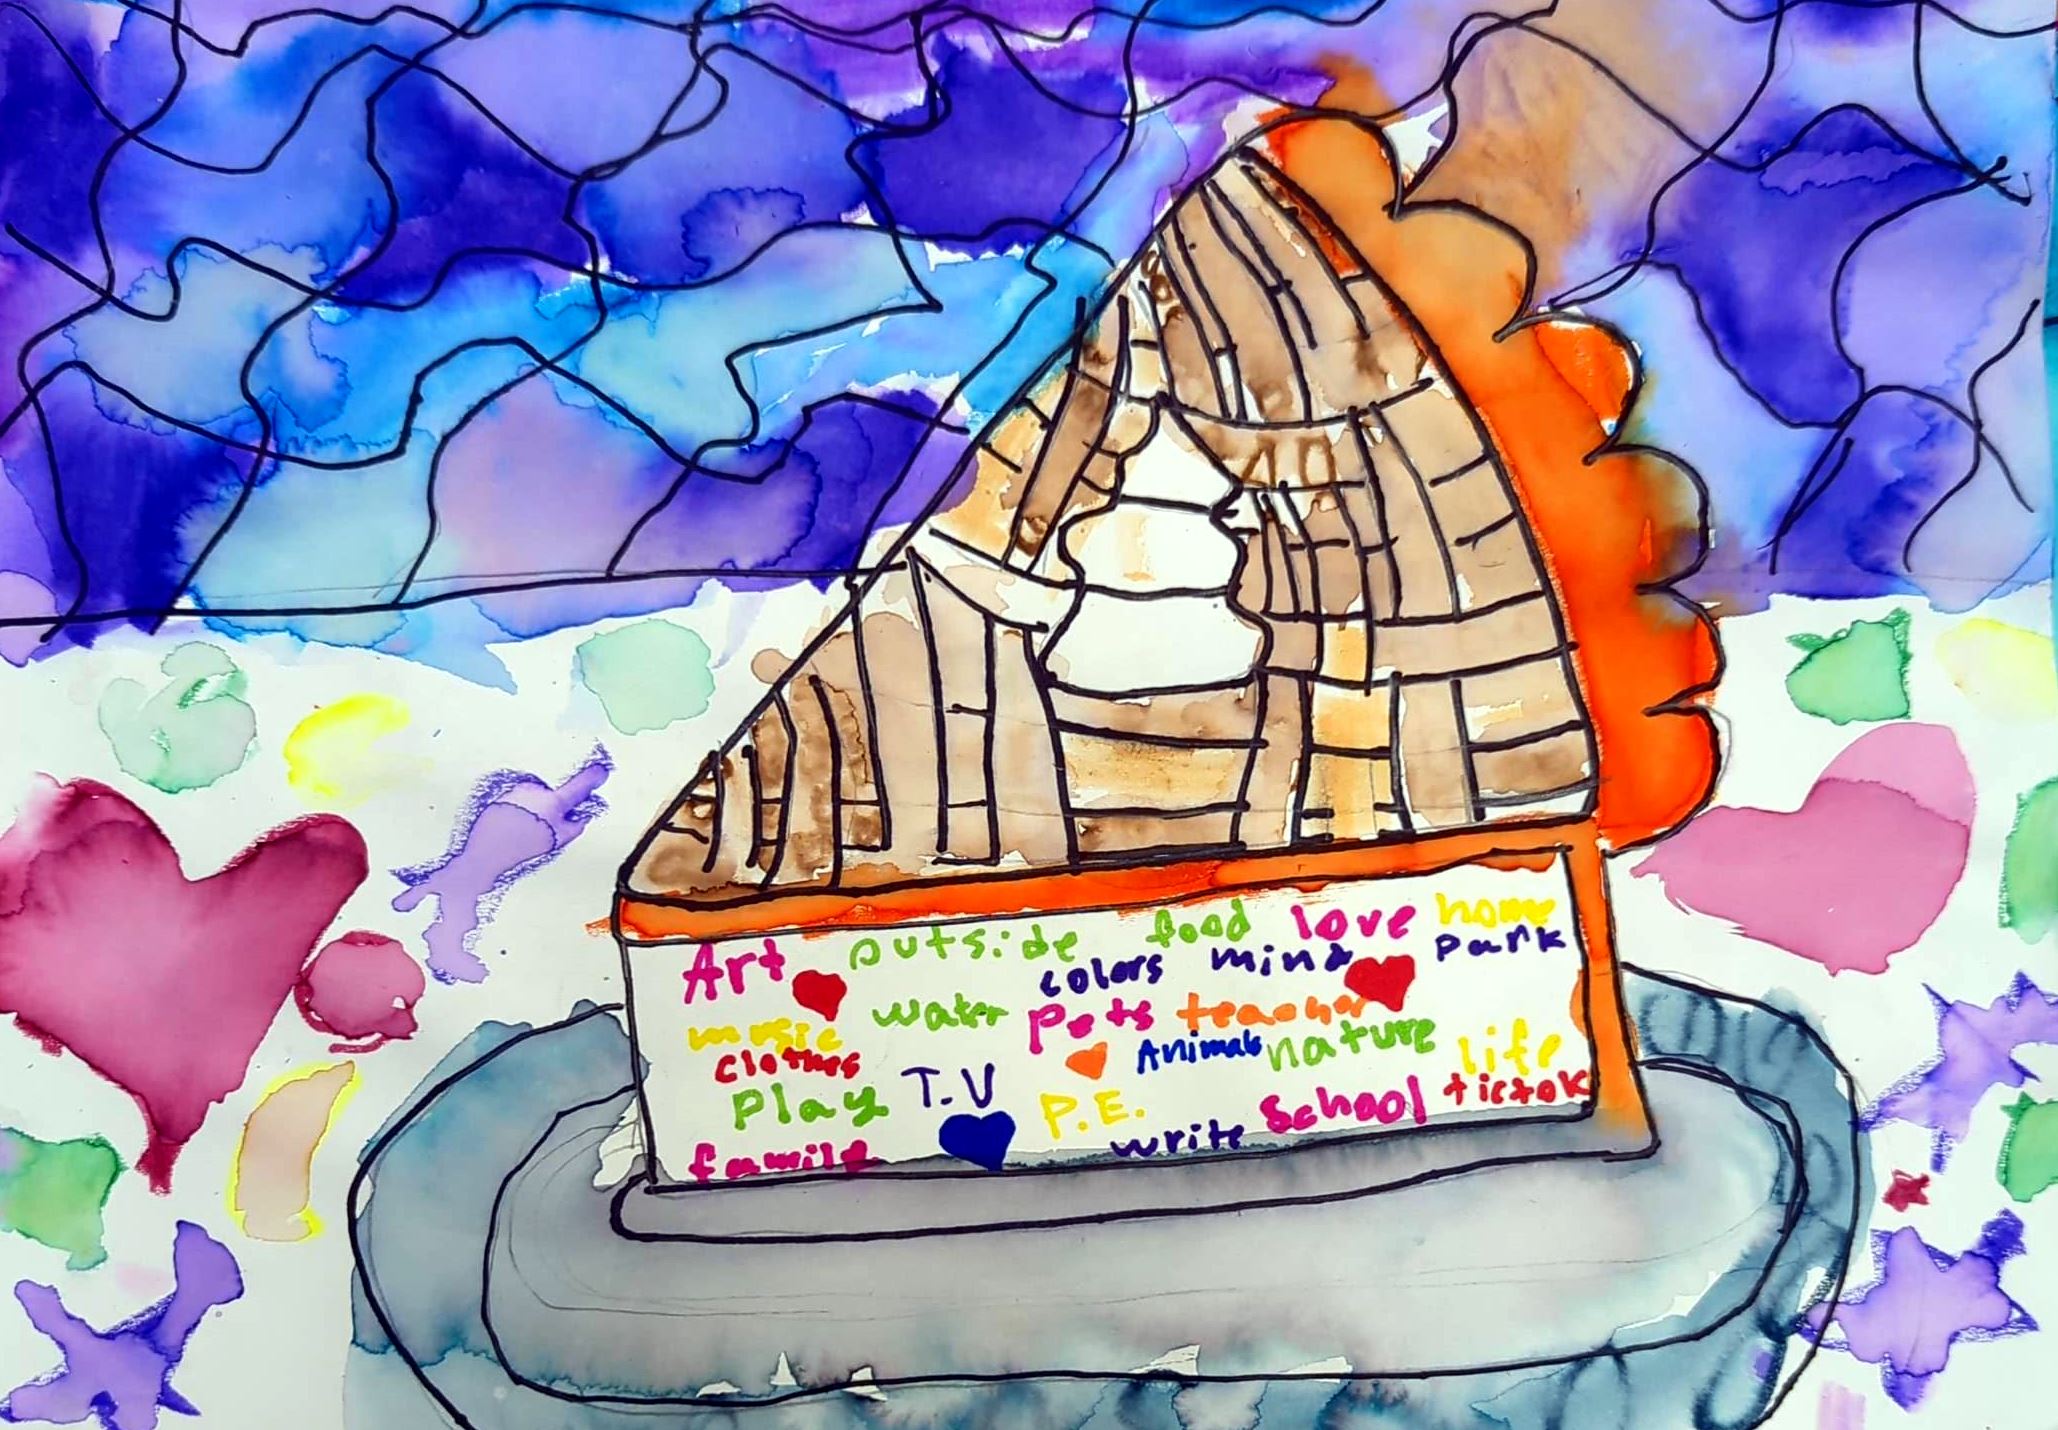 Art outside food love home
colors mind park
music water pets teacher
clothes Animals nature life
Play T.V P.E. School tictok
famile write